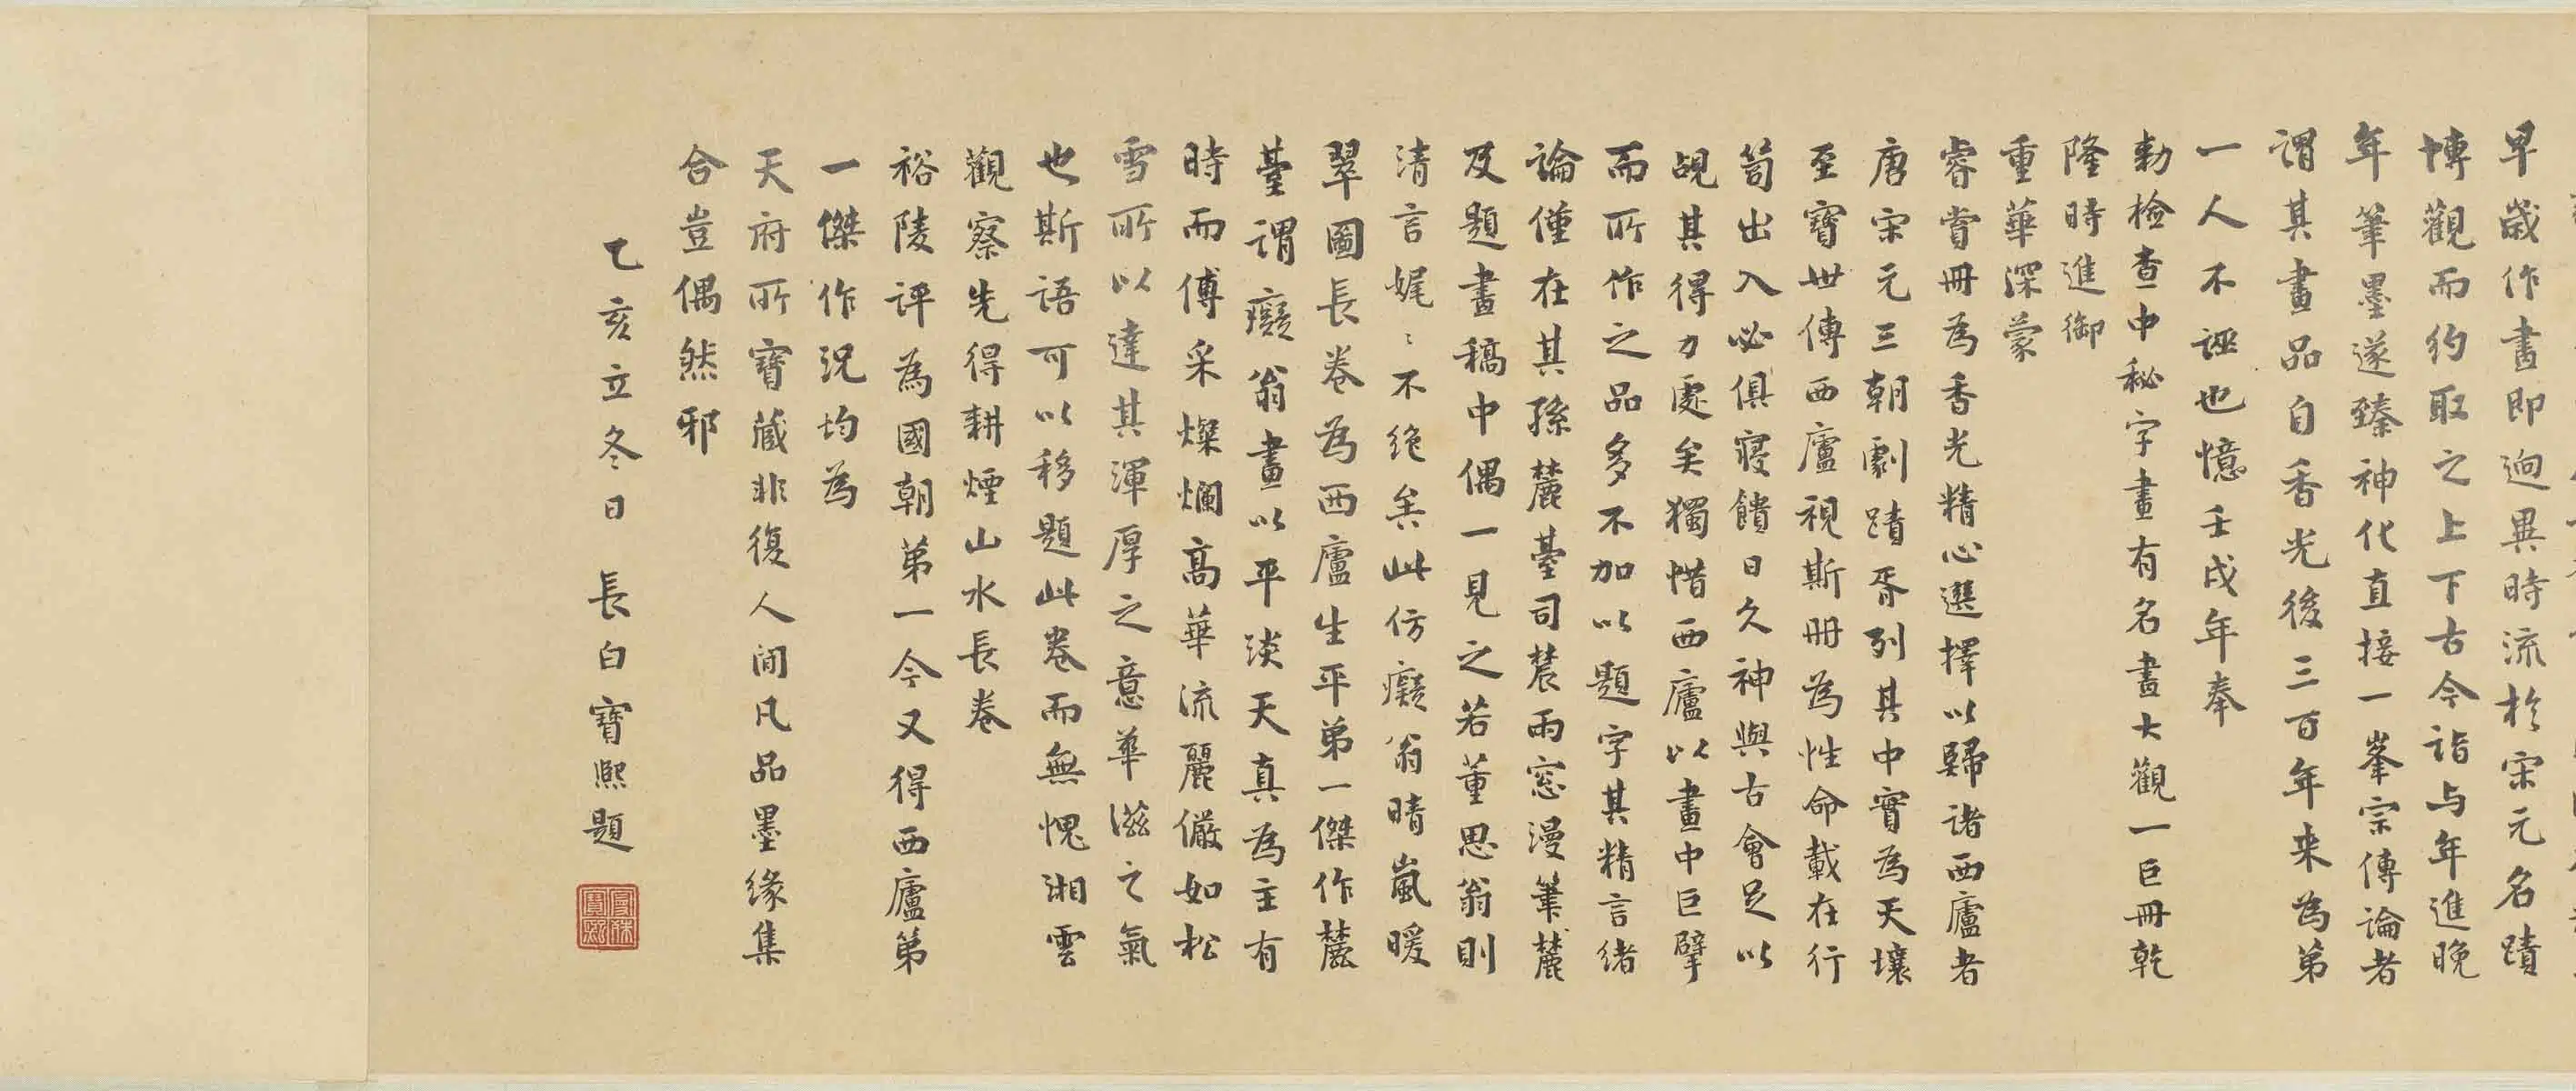 早歲作畫即迥異時流於宋元名蹟
博觀而約取之上下古今詣与年進晚
年筆墨遂臻神化直接一峯宗傳論者
謂其畫品自香光後三百年来為弟
一人不誣也憶壬戌年奉
勅檢查中秘字畫有名畫大觀一巨冊乾
隆時進御
重華深蒙
睿賞冊為香光精心選擇以歸諸西廬者
唐宋元三朝劇蹟胥列其中實為天壤
至寶世傳西廬視斯冊為性命載在行
笥出入必俱寢饋日久神與古會足以
覘其得力處矣獨惜西廬以畫中巨擘
而所作之品多不加以題字其精言緒
論僅在其孫麓臺司農雨窓漫筆麓
及題畫稿中偶一見之若董思翁則
清言娓〻不絶矣此仿癡翁晴嵐暖
翠圖長卷為西廬生平弟一傑作麓
臺謂癡翁畫以平淡天真為主有
時而傅采燦爛高華流麗儼如松
雪所以達其渾厚之意華滋之氣
也斯語可以移題此卷而無愧湘雲
觀察先得耕煙山水長卷
裕陵評為國朝第一今又得西廬弟
一傑作況均為
天府所寶藏非復人間凡品墨緣集
合豈偶然邪
乙亥立冬日 長白寶熙題